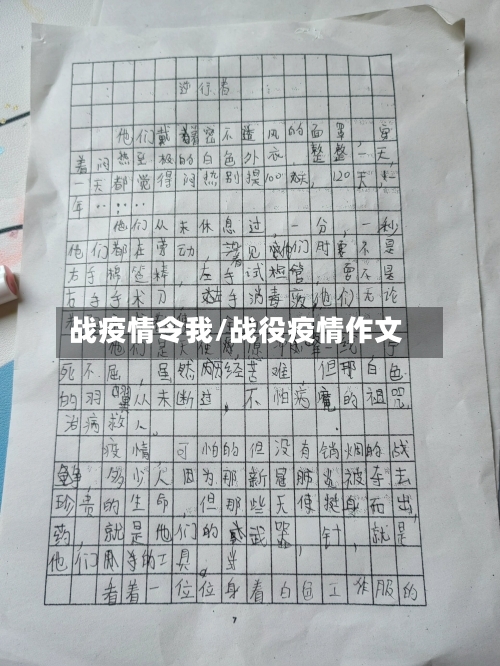 逆行者
他们戴着密不透风的面罩,穿
着闷热至极的白色外衣,整整一天,
一天都觉得闷热别提100天,120天,一
年……
他们从未休息过,一分,一秒
他们都在劳动,看见他们时要不是
右手棉签,左手试管,要不是
右手手术刀,左手消毒液,他们无论
战疫情令我/战役疫情作文
死不屈,虽然历经苦难,但那白色
的羽翼从未断过,不怕病魔的诅咒,
治病救人。
疫情,可怕的但没有销烟的战
争,多少人因为那新冠肺炎被夺去
珍贵的生命,但那些天使挺身而出,
药,就是他们的武器,针,就是
他们的工具,
看着一位位身着白色工作服的
7